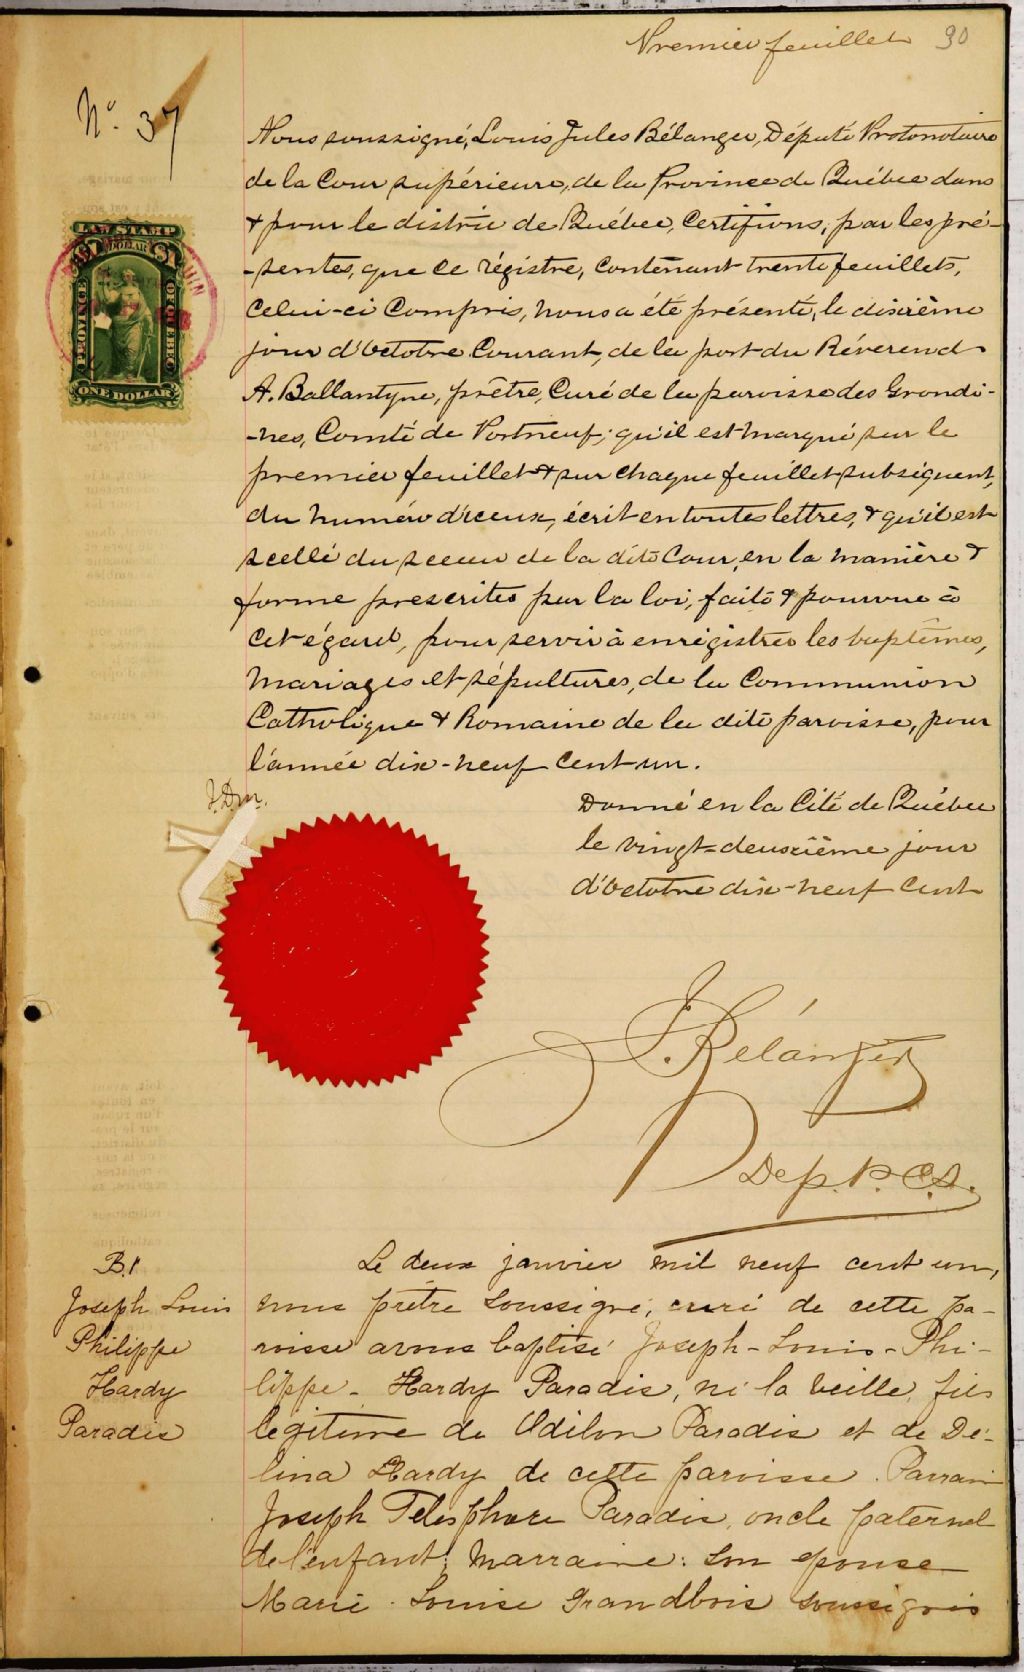 Premier feuillet 30
No. 37
Nous soussigné, Louis Jules Bélanger, Député Protonotaire
de la Cour supérieure, de la Province de Québec dans
& pour le district de Québec, Certifions, par les pré-
-sentes, que ce régistre, contenant trente feuillets,
celui-ci Compris, nous a été présenté, le dixième
jour d'octobre Courant, de la part du Révérend
A. Ballantyne, prêtre, Curé de la paroisse des Grondi-
-nes, Comté de Portneuf; qu'il est marqué sur le
premier feuillet & sur chaque feuillet subséquent,
du numéro d'iceux, écrit en toutes lettres, & qu'il est
scellé du sceau de la dite Cour, en la manière &
forme prescrites par la loi, faite & pourvue à
cet égard, pour servir à enrégistrer les baptêmes,
mariages et sépultures, de la Communion
Catholique & Romaine de la dite paroisse, pour
l'année dix-neuf cent un.
LAW STAMP
DOLLAR
PROVINCE OF QUEBEC
ONE DOLLAR
Donné en la Cité de Québec
le vingt-deuxième jour
d'octobre dix-neuf cent
J. Bélanger
Dep. P. C. S.
B.1
Joseph Louis
Philippe
Hardy
Paradis
Le deux janvier mil neuf cent un,
nous prêtre soussigné, curé de cette pa-
roisse avons baptisé Joseph-Louis-Phi-
lippe-Hardy Paradis, né la veille, fils
légitime de Odilon Paradis et de Dé-
lina Hardy de cette paroisse. Parrain
Joseph Télesphore Paradis, oncle paternel
de l'enfant; Marraine: son épouse
Marie-Louise Grandbois soussignés